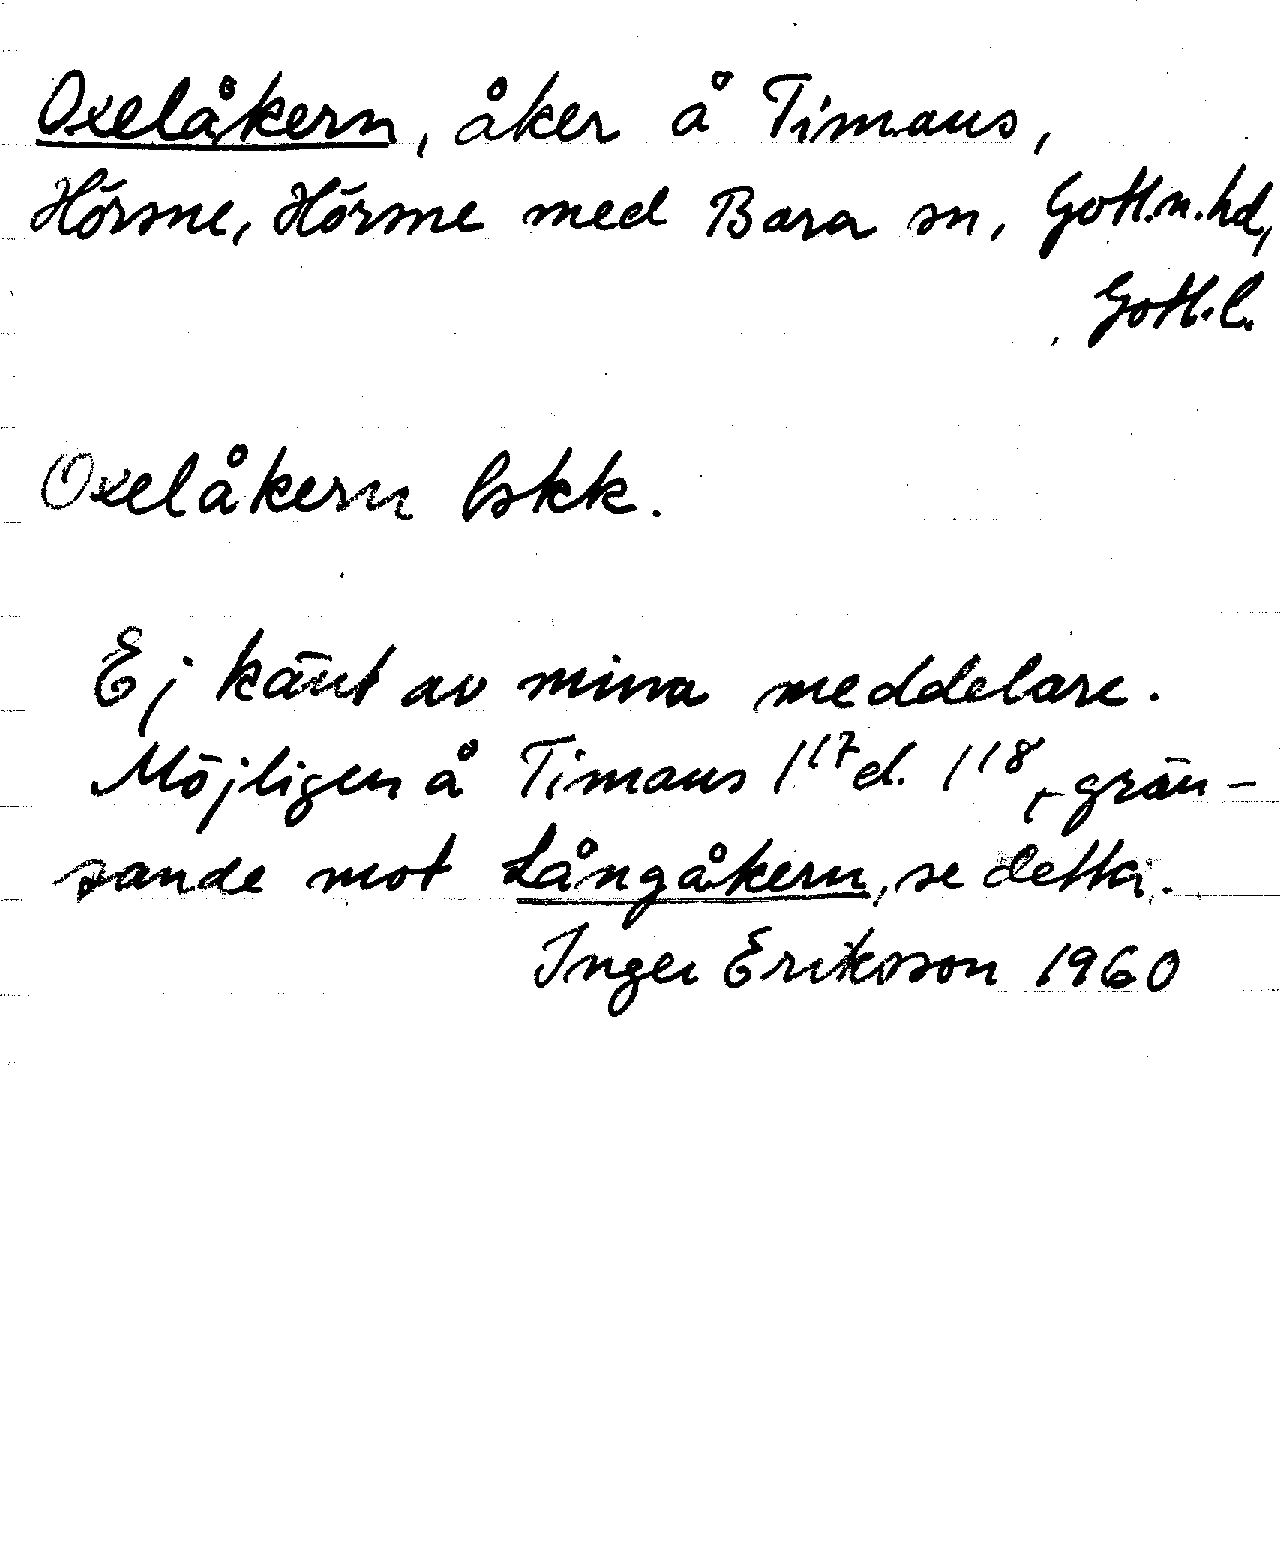 Oxelåkern, åker å Timans,
Hörsne, Hörsne med Bara sn, Gotl.n.hd,
Gotl.l.
Oxelåkern bskk.
Ej känt av mina meddelare.
Möjligen å Timans 1¹⁷ d. 1¹⁸, grän-
sande mot Långåkern, se detta.
Inger Eriksson 1960